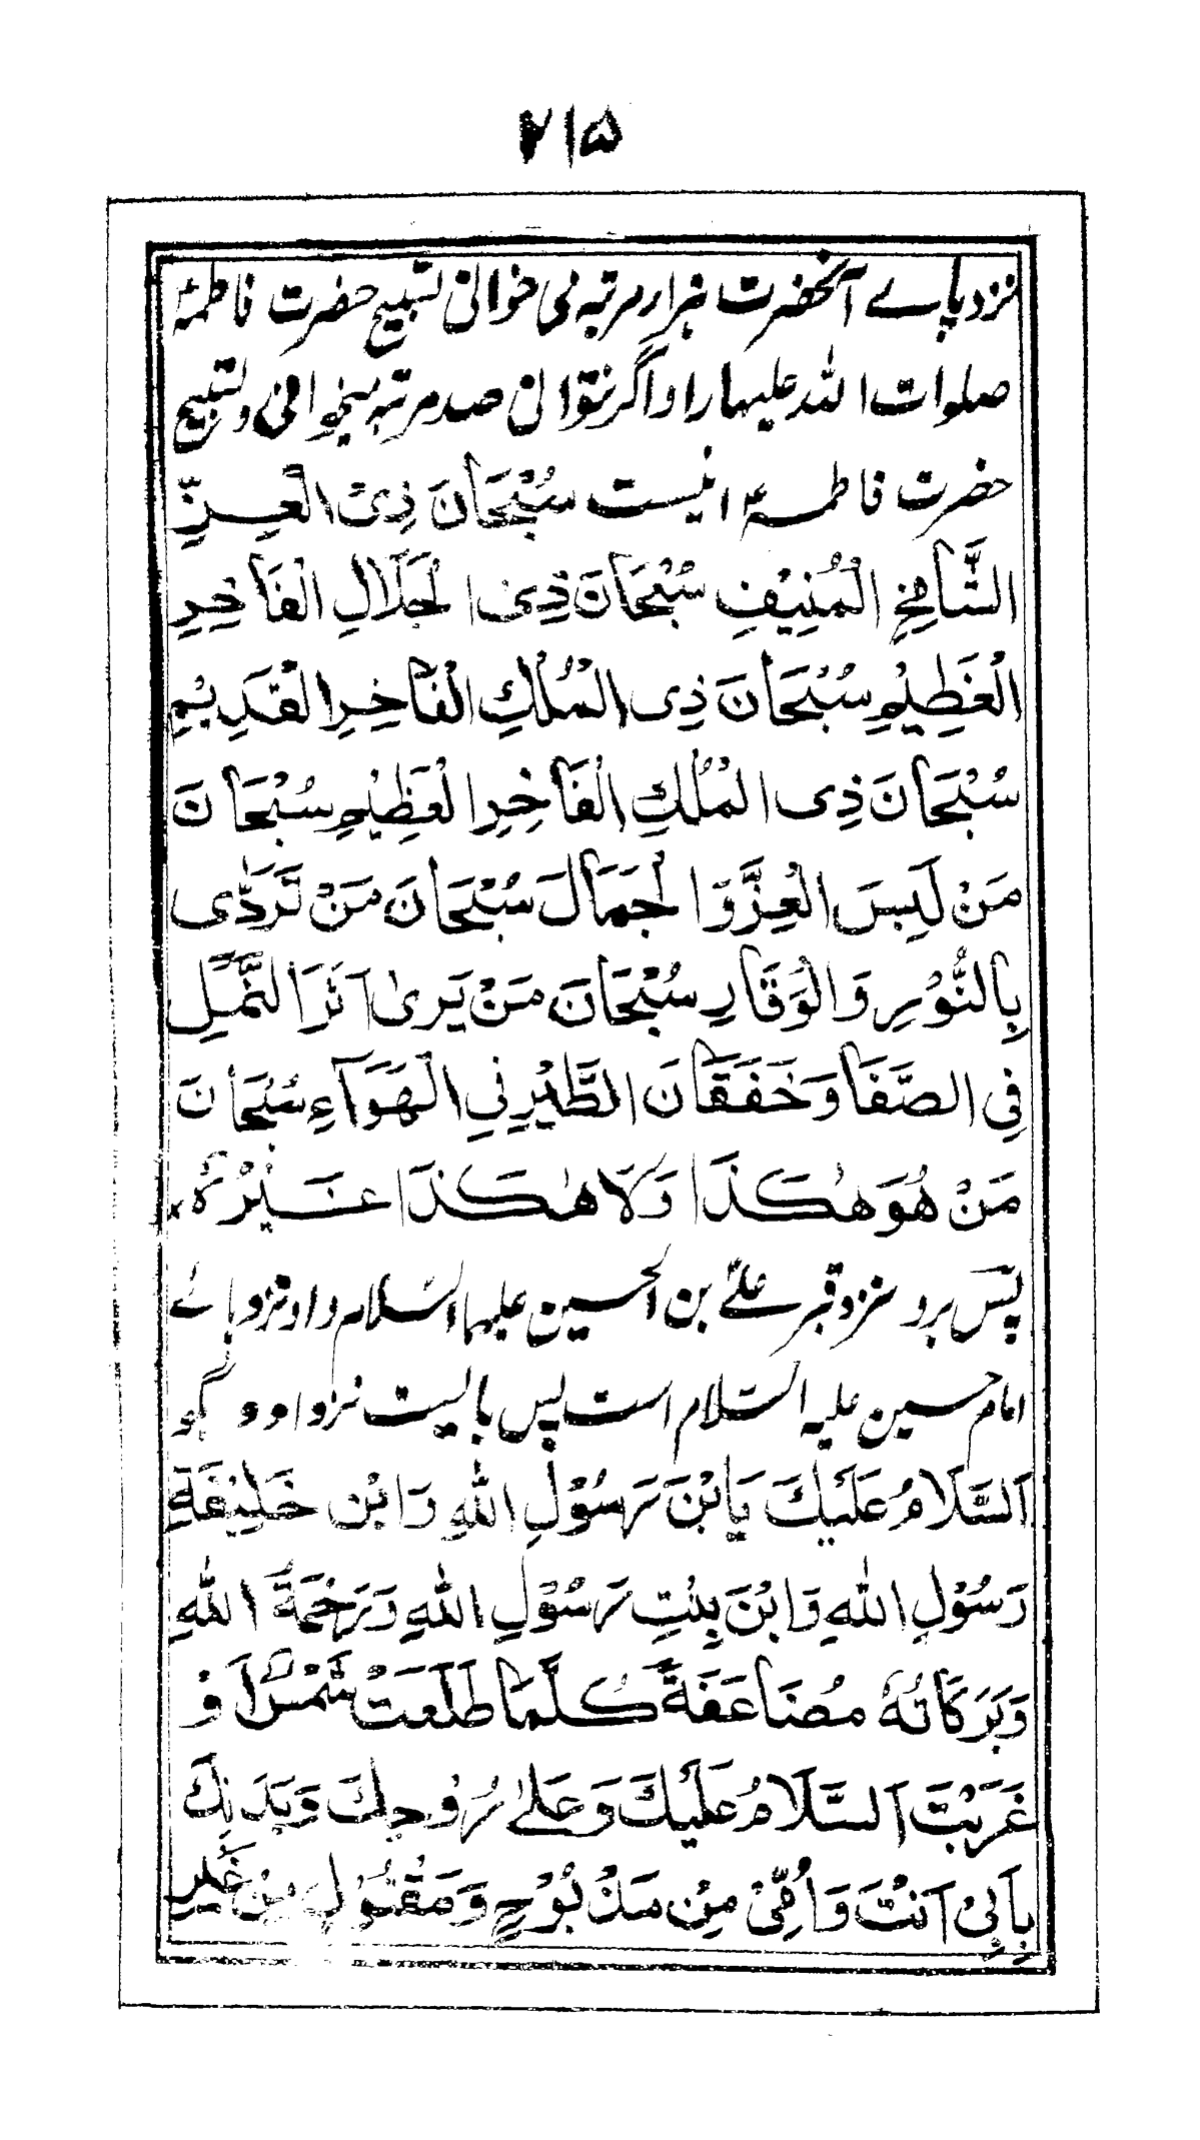 ۲۱۵
نزد پاے آنحضرت ہزار مرتبہ می خوانی تسبیح حضرت فاطمہؑ
صلوات اللہ علیہا را و اگر نتوانی صد مرتبہ میخوانی و تسبیح
حضرت فاطمہؑ اینست سُبْحَانَ ذِی الْعِزِّ
الشَّامِخِ الْمُنِیْفِ سُبْحَانَ ذِی الْجَلَالِ الْفَاخِرِ
الْعَظِیْمِ سُبْحَانَ ذِی الْمُلْكِ الْفَاخِرِ الْقَدِیْمِ
سُبْحَانَ ذِی الْمُلْكِ الْفَاخِرِ الْعَظِیْمِ سُبْحَانَ
مَنْ لَبِسَ الْعِزَّ وَالْجَمَالَ سُبْحَانَ مَنْ تَرَدّٰی
بِالنُّوْرِ وَالْوَقَارِ سُبْحَانَ مَنْ یَرٰی اَثَرَ النَّمْلِ
فِی الصَّفَا وَخَفَقَانَ الطَّیْرِ فِی الْهَوَآءِ سُبْحَانَ
مَنْ هُوَ هٰكَذَا وَلَا هٰكَذَا غَیْرُهٗ
پس برو نزد قبر علے بن الحسین علیہما السلام و او نزد پاے
امام حسین علیہ السلام است پس بایست نزد او و بگو
اَلسَّلَامُ عَلَیْكَ یَابْنَ رَسُوْلِ اللّٰهِ وَابْنَ خَلِیْفَةِ
رَسُوْلِ اللّٰهِ وَابْنَ بِنْتِ رَسُوْلِ اللّٰهِ وَرَحْمَةُ اللّٰهِ
وَبَرَكَاتُهٗ مُضَاعَفَةً كُلَّمَا طَلَعَتْ شَمْسٌ اَوْ
غَرَبَتْ اَلسَّلَامُ عَلَیْكَ وَعَلٰی رُوْحِكَ وَبَدَنِكَ
بِاَبِیْ اَنْتَ وَاُمِّیْ مِنْ مَذْبُوْحٍ وَمَقْتُوْلٍ مِنْ غَیْرِ